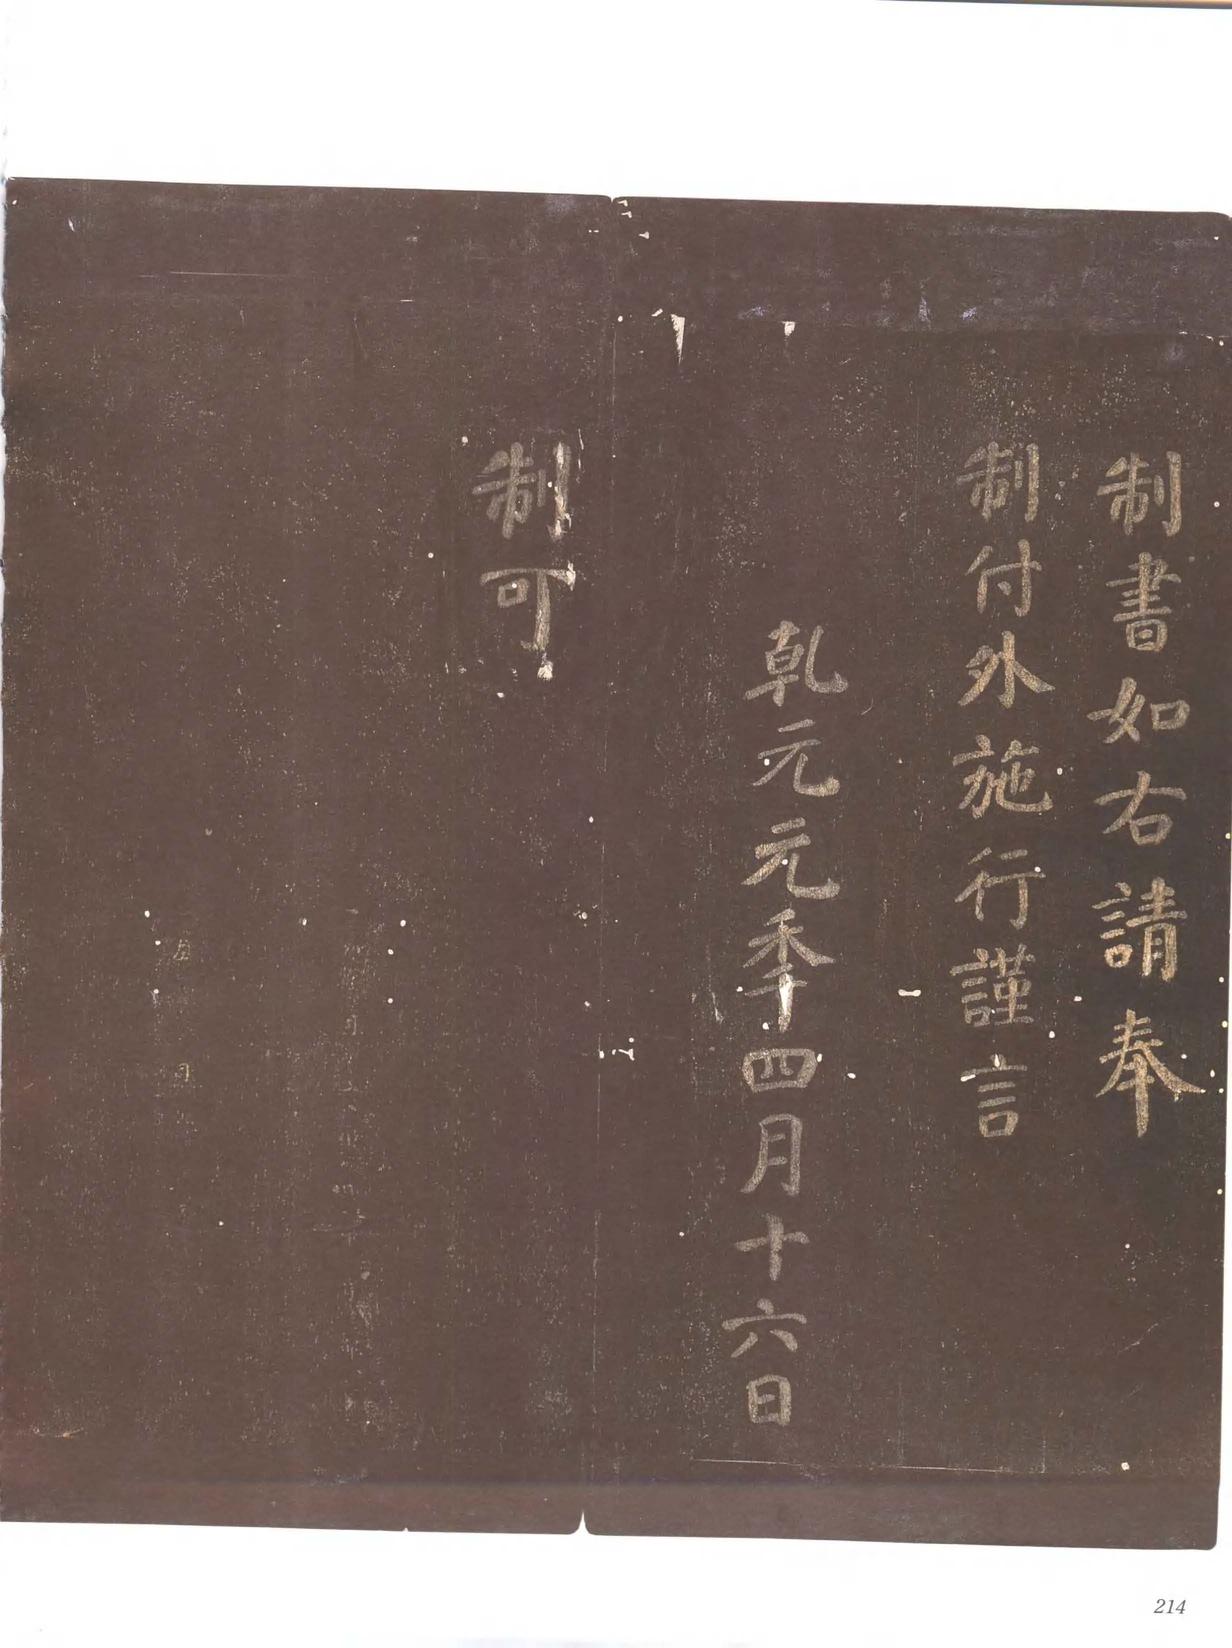 制書如右請奉
制付外施行謹言
乹元元季四月十六日
制可
214